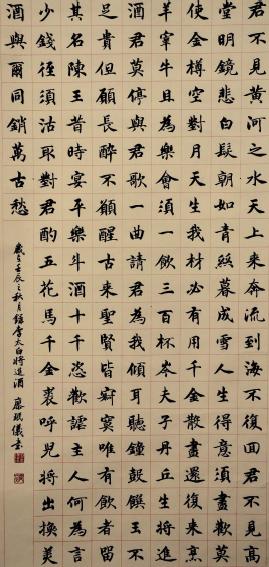 君不見黃河之水天上來奔流到海不復回君不見高
堂明鏡悲白髮朝如青絲暮成雪人生得意須盡歡莫
使金樽空對月天生我材必有用千金散盡還復來烹
羊宰牛且為樂會須一飲三百杯岑夫子丹丘生將進
酒君莫停與君歌一曲請君為我傾耳聽鐘鼓饌玉不
足貴但願長醉不願醒古來聖賢皆寂寞唯有飲者留
其名陳王昔時宴平樂斗酒十千恣歡謔主人何為言
少錢徑須沽取對君酌五花馬千金裘呼兒將出換美
酒與爾同銷萬古愁
歲在壬辰之秋月錄李太白將進酒 廖珮儀書